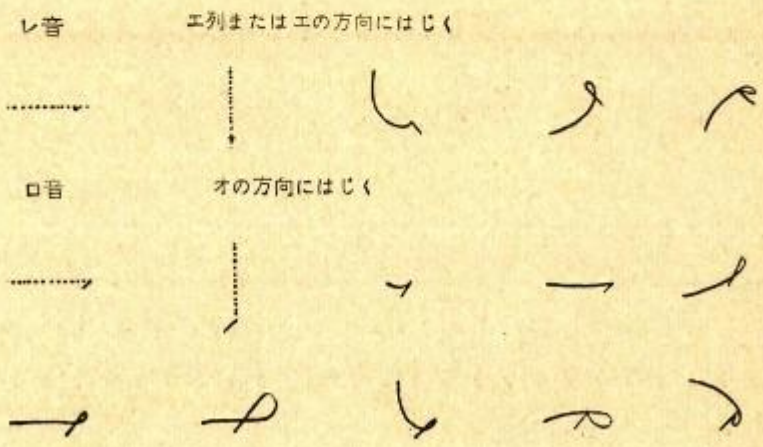 レ音 エ列またはエの方向にはじく
ロ音 オの方向にはじく